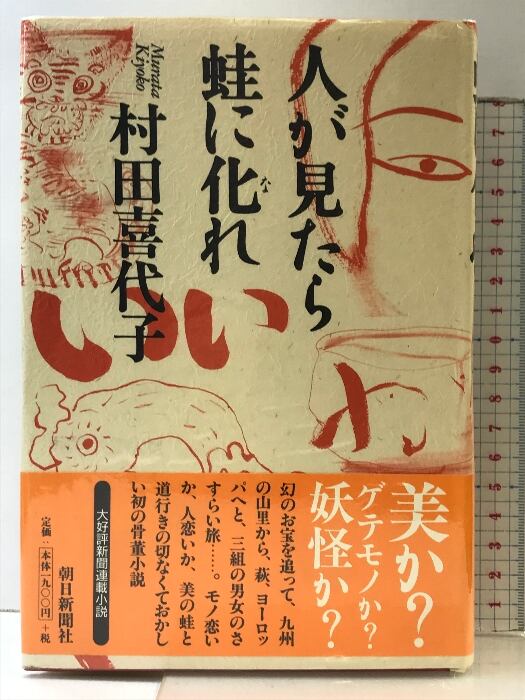 人が見たら
蛙に化れ
な
Murata
Kiyoko
村田喜代子
美か?
ゲテモノか?
妖怪か?
幻のお宝を追って、九州
の山里から、萩、ヨーロッ
パへと、三組の男女のさ
すらい旅……。モノ恋い
か、人恋いか、美の蛙と
道行きの切なくておかし
い初の骨董小説
大好評新聞連載小説
朝日新聞社
定価:本体一九〇〇円+税